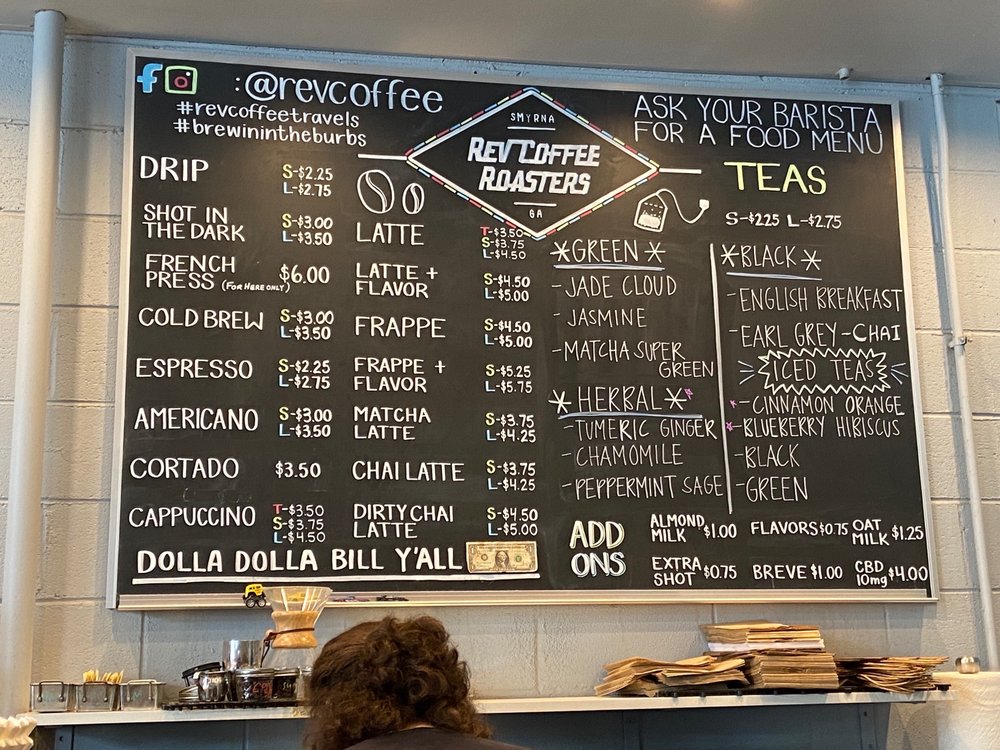 :@revcoffee
#revcoffeetravels
#brewinintheburbs
SMYRNA
REV COFFEE
ROASTERS
GA
ASK YOUR BARISTA
FOR A FOOD MENU
DRIP
S-$2.25
L-$2.75
SHOT IN
THE DARK
S-$3.00
L-$3.50
FRENCH
PRESS (FOR HERE ONLY) $6.00
COLD BREW
S-$3.00
L-$3.50
ESPRESSO
S-$2.25
L-$2.75
AMERICANO
S-$3.00
L-$3.50
CORTADO $3.50
CAPPUCCINO
T-$3.50
S-$3.75
L-$4.50
LATTE
T-$3.50
S-$3.75
L-$4.50
LATTE +
FLAVOR
S-$4.50
L-$5.00
FRAPPE
S-$4.50
L-$5.00
FRAPPE +
FLAVOR
S-$5.25
L-$5.75
MATCHA
LATTE
S-$3.75
L-$4.25
CHAI LATTE
S-$3.75
L-$4.25
DIRTY CHAI
LATTE
S-$4.50
L-$5.00
DOLLA DOLLA BILL Y'ALL
TEAS
S-$2.25 L-$2.75
*GREEN*
-JADE CLOUD
-JASMINE
-MATCHA SUPER
GREEN
*HERBAL*
-TUMERIC GINGER
-CHAMOMILE
-PEPPERMINT SAGE
*BLACK*
-ENGLISH BREAKFAST
-EARL GREY-CHAI
ICED TEAS
-CINNAMON ORANGE
-BLUEBERRY HIBISCUS
-BLACK
-GREEN
ADD
ONS
ALMOND
MILK $1.00
FLAVORS $0.75
OAT
MILK $1.25
EXTRA
SHOT $0.75
BREVE $1.00
CBD
10mg $4.00